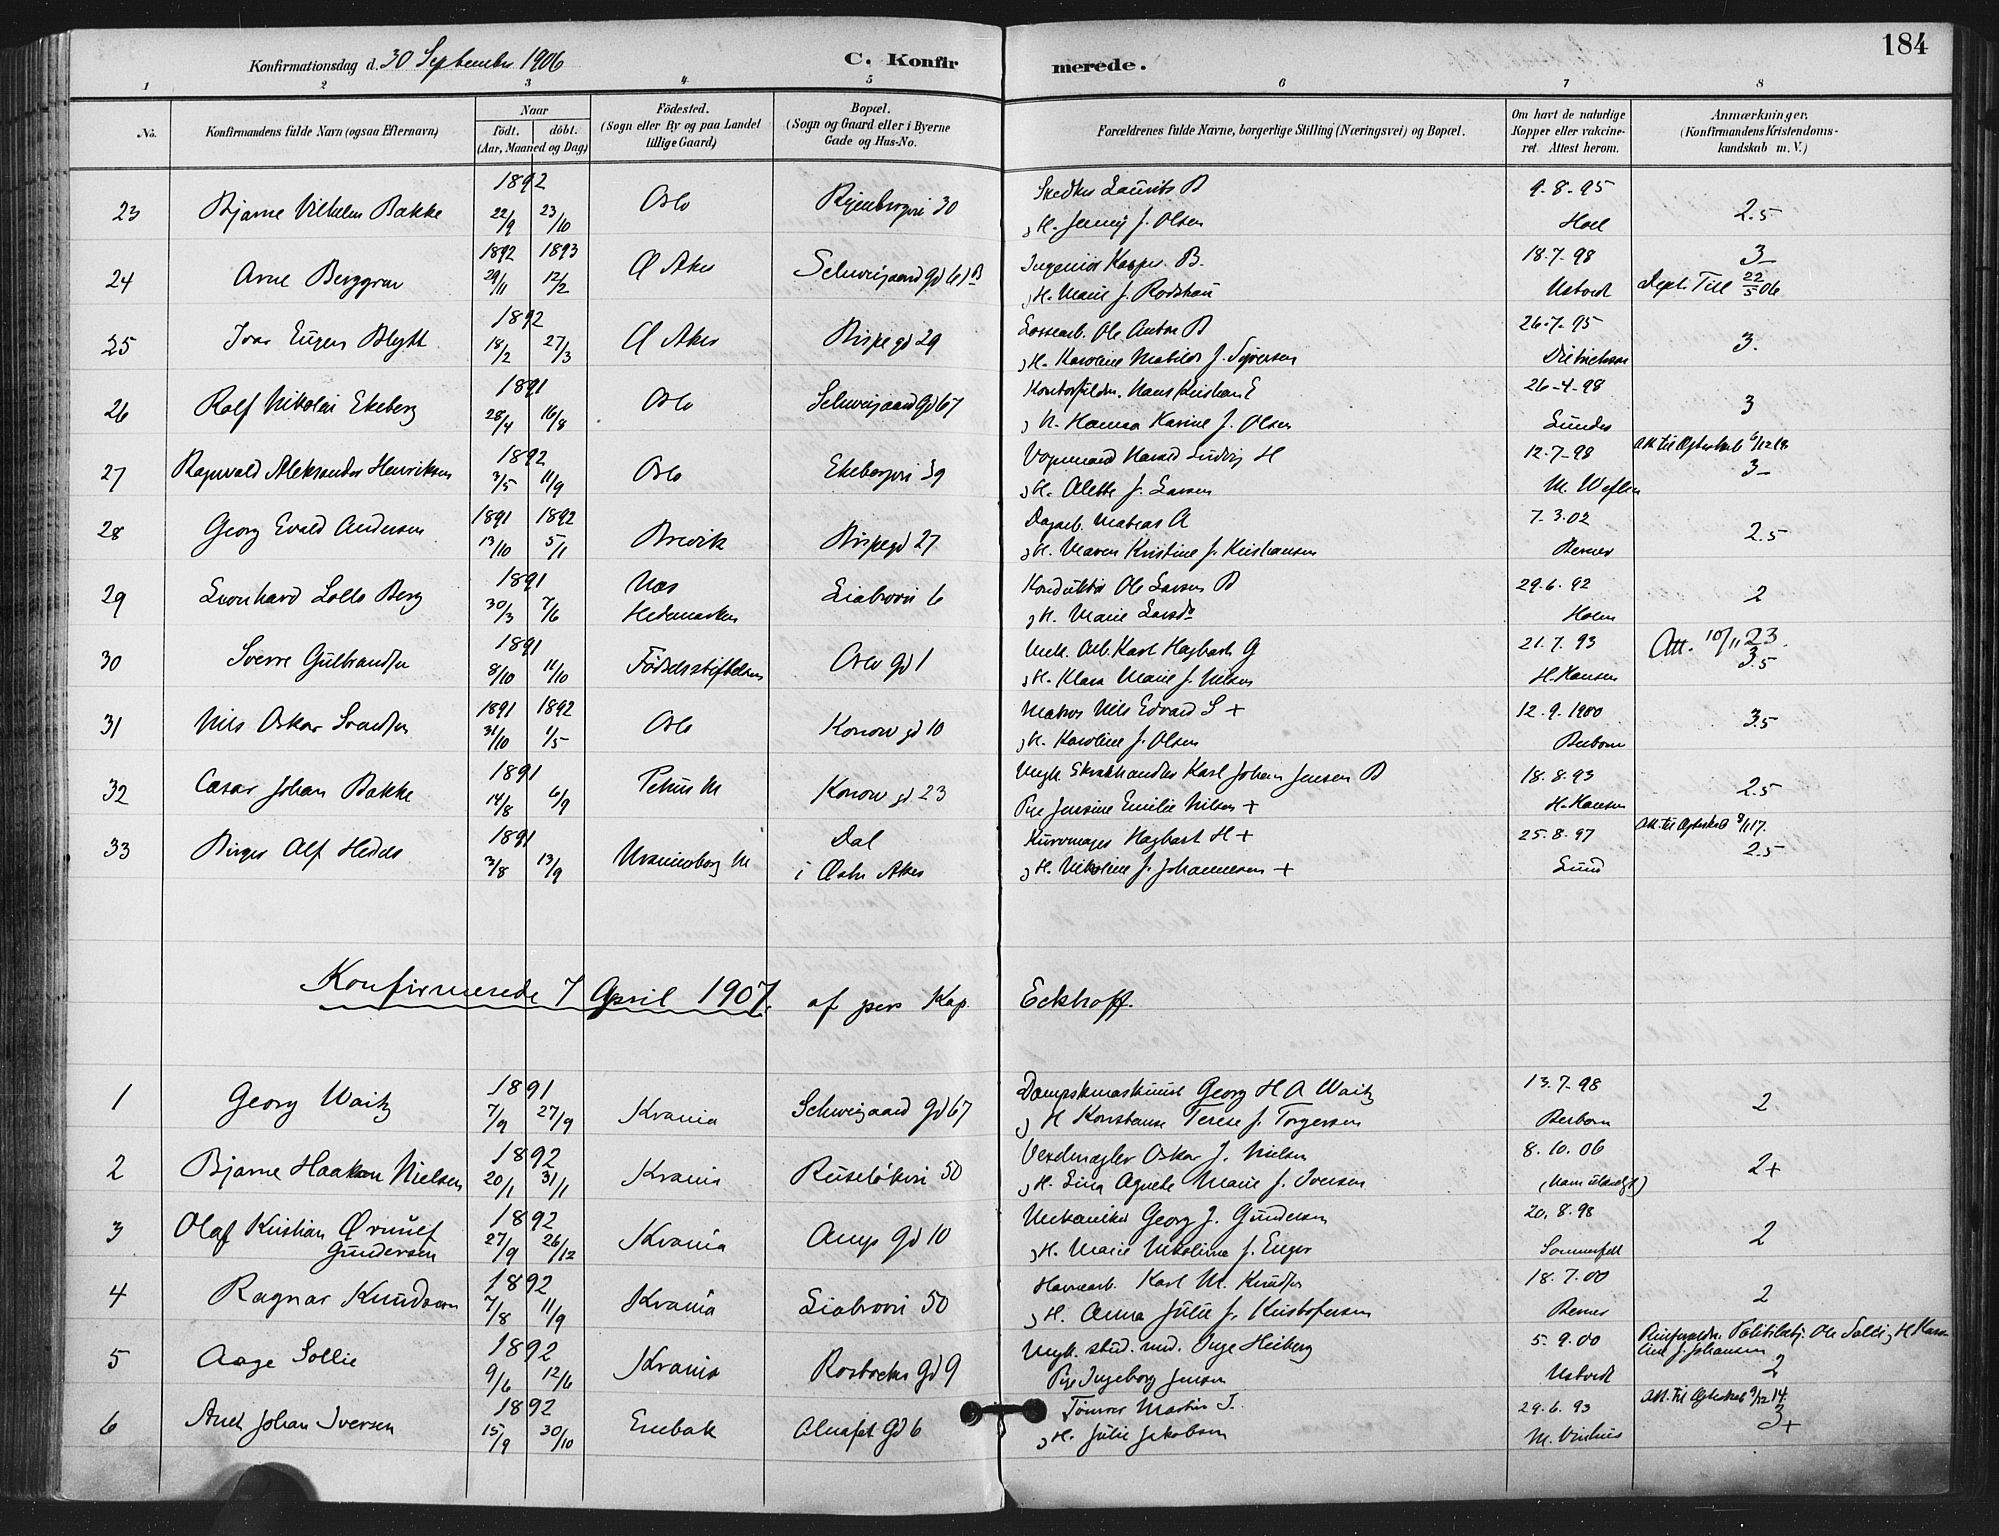 184
Konfirmationsdag d. 30 September 1906 C. Konfirmerede.
1 2 3 4 5 6 7 8
No. Konfirmandens fulde Navn (ogsaa Efternavn) Naar født. døbt. (Aar, Maaned og Dag) Födested. (Sogn eller By og paa Landet tillige Gaard) Bopæl. (Sogn og Gaard eller i Byerne Gade og Hus-No. Forældrenes fulde Navne, borgerlige Stilling (Næringsvei) og Bopæl. Om havt de naturlige Kopper eller vakcineret. Attest herom. Anmærkninger. (Konfirmandens Kristendomskundskab m. V.)
1892 Laurits B 9-8-95
23 Bjarne Vilhelm Bakke 22/9 23/10 Oslo 30 H. Jenny f. Olsen Hoel 2.5
1892 1893 Ingeniør B. 18.7-98 3
24 Arne Berggrav 29/11 12/2 Ø Aker Schweigaard gd 61 B H. Marie f. Ustvedt 22/5 06
1892 Ole Anton B 26-7-95
25 Ivar Eugen Blytt 18/2 27/3 Ø Aker Bispegd 29 H. Karoline Matilde f. Syversen Dietrichson 3.
1891 Hans Kristian E 26-4-98
26 Rolf Nikolai Ekeberg 28/4 16/8 Oslo Schweigaard gd 67 H. Hanna Karine f. Olsen Lunde 3
1892 Vognmand Harald Ludvig H 12-7-98 Att. til Ægteskab 6/12 18
27 Ragnvald Aleksander Henriksen 3/5 11/9 Oslo Ekebergvei 39 H. Alette f. Larsen 3
1891 1892 Dagarb. Matias A 7.3.02
28 Georg Evald Andersen 13/10 5/1 Brevik Bispegd 27 H. Maren Kristine f. Kristiansen Berner 2.5
1891 Næs Konduktør Ole Larsen B 29.6.92
29 Leonhard Berg 30/3 7/6 Hedemarken Liabrovei 6 H. Marie Larsdr Holm 2
1891 Mek. Arb. Karl Hagbart G 21.7.93 Att. 10/11 23.
30 Sverre Gulbrandsen 8/10 11/10 Födselsstiftelsen Oslo gd 1 H. Klara Marie f. Nilsen H. Hansen 3.5
1891 1892 Matros Nils Edvard S + 12.9.1900
31 Nils Oskar Svendsen 31/10 1/5 Oslo Konow gd 10 H. Karoline f. Olsen 3.5
1891 Ungk. Karl Johan Jensen B 18.8.93
32 Cæsar Johan Bakke 14/8 6/9 Petrus M Konow gd. 23 Pge Jensine Emilie Nilsen + H. Hansen 2.5
1891 Dal Kurvmager Hagbart H + 25.8.97 Att. til Ægteskab 9/1 17.
33 Birger Alf 3/8 13/9 Uranienborg M i Østre Aker H. Nikoline f. Johannesen + Lund 2.5
Konfirmerede 7 April 1907. af pers. Kap. Eckhoff.
1891 Dampskmaskinist Georg H A Waitz 13.7-98
1 Georg Waitz 7/9 27/9 Krania Schweigaard gd 67 H Konstanse Terese f. Torgersen 2
1892 Vexelmægler Oskar J. Nielsen 8.10.06
2 Bjarne Haakon Nielsen 20/1 31/1 Krania Ruseløkvei 50 H. Lina Agnete Marie f. Iversen (Navn ulæseligt) 2+
1892 Mekaniker Georg J. Gundersen 20.8.98
3 Olaf Kristian Ørnulf 27/9 26/12 Krania gd 10 H. Marie Nikoline f. Enger Sommerfelt 2
Gundersen
1892 Havnearb. Karl M. Knudsen 18.7.00
4 Ragnar Knudsen 7/8 11/9 Krania Liabrovei 50 H. Anna Julie f. Kristofersen Berner 2
1892 Ungk. stud. med. Inge Heiberg 5.9.00 Ole Sollie, H
5 Aage Sollie 9/6 12/6 Krania gd 9 Pge Ingeborg Jensen Ustvedt f. Johansen 2
1892 Tömrer Martin I. 29.6.93 Att. til Ægteskab 9/12 14.
6 Johan Iversen 15/9 30/10 Enebak Almafet Gd 6 H. Julie Jakobsen M. Vinsnes 3+